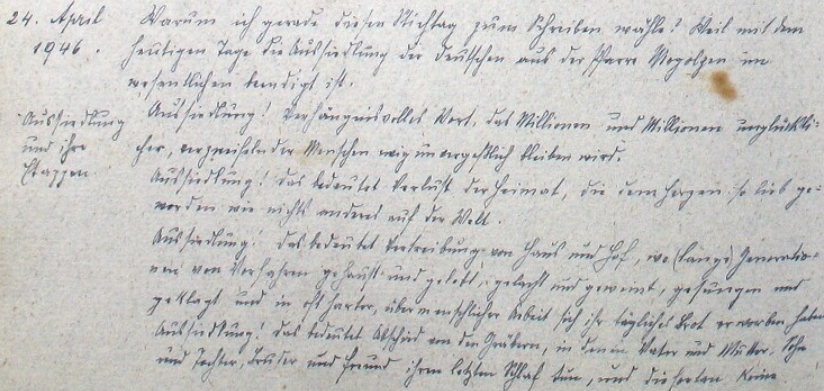 24. April
1946.
Aussiedlung
und ihre
Etappen
Warum ich gerade diesen Stichtag zum Schreiben wähle? Weil mit dem
heutigen Tage die Aussiedlung der Deutschen aus der Pfarre Mogolzen im
wesentlichen beendigt ist.
Aussiedlung! Verhängnisvolles Wort, das Millionen und Millionen unglückli-
cher, verzweifelnder Menschen ewig unvergeßlich bleiben wird.
Aussiedlung! Das bedeutet Verlust der Heimat, die dem Herzen so lieb ge-
worden wie nichts anderes auf der Welt.
Aussiedlung! Das bedeutet Vertreibung von Haus und Hof, wo (lange) Generatio-
nen von Vorfahren gehaust und gelebt, gelacht und geweint, gesungen und
geklagt und in oft harter, übermenschlicher Arbeit sich ihr tägliches Brot erworben haben
Aussiedlung! Das bedeutet Abschied von den Gräbern, in denen Vater und Mutter, Sohn
und Tochter, Bruder und Freund ihren letzten Schlaf tun, und die fortan keine